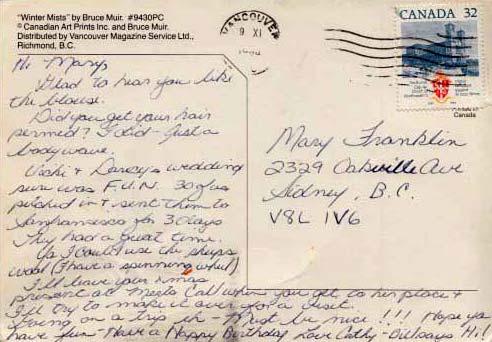 "Winter Mists" by Bruce Muir. #9430PC
© Canadian Art Prints Inc. and Bruce Muir.
Distributed by Vancouver Magazine Service Ltd.,
Richmond, B.C.
VANCOUVER
9 XI
CANADA 32
Canada
Hi Mary,
Glad to hear you like
the blouse.
Did you get your hair
permed? I did - Just a
bodywave.
Vicki & Darcy's wedding
sure was F.U.N. 30 of us
pitched in & sent them to
Sanfransisco for 3 days
They had a great time.
Ya I could use the sheeps
wool (I have a spinning wheel)
I'll leave your xmas
present at Merts. Call when you get to her place &
I'll try to make it over for a visit.
Going on a trip eh - Must be nice!!! Hope ya
have fun - Have a Happy Birthday Love Cathy - Bill says Hi!
Mary Franklin
2329 Oakville Ave
Sidney, B.C.
V8L 1V6